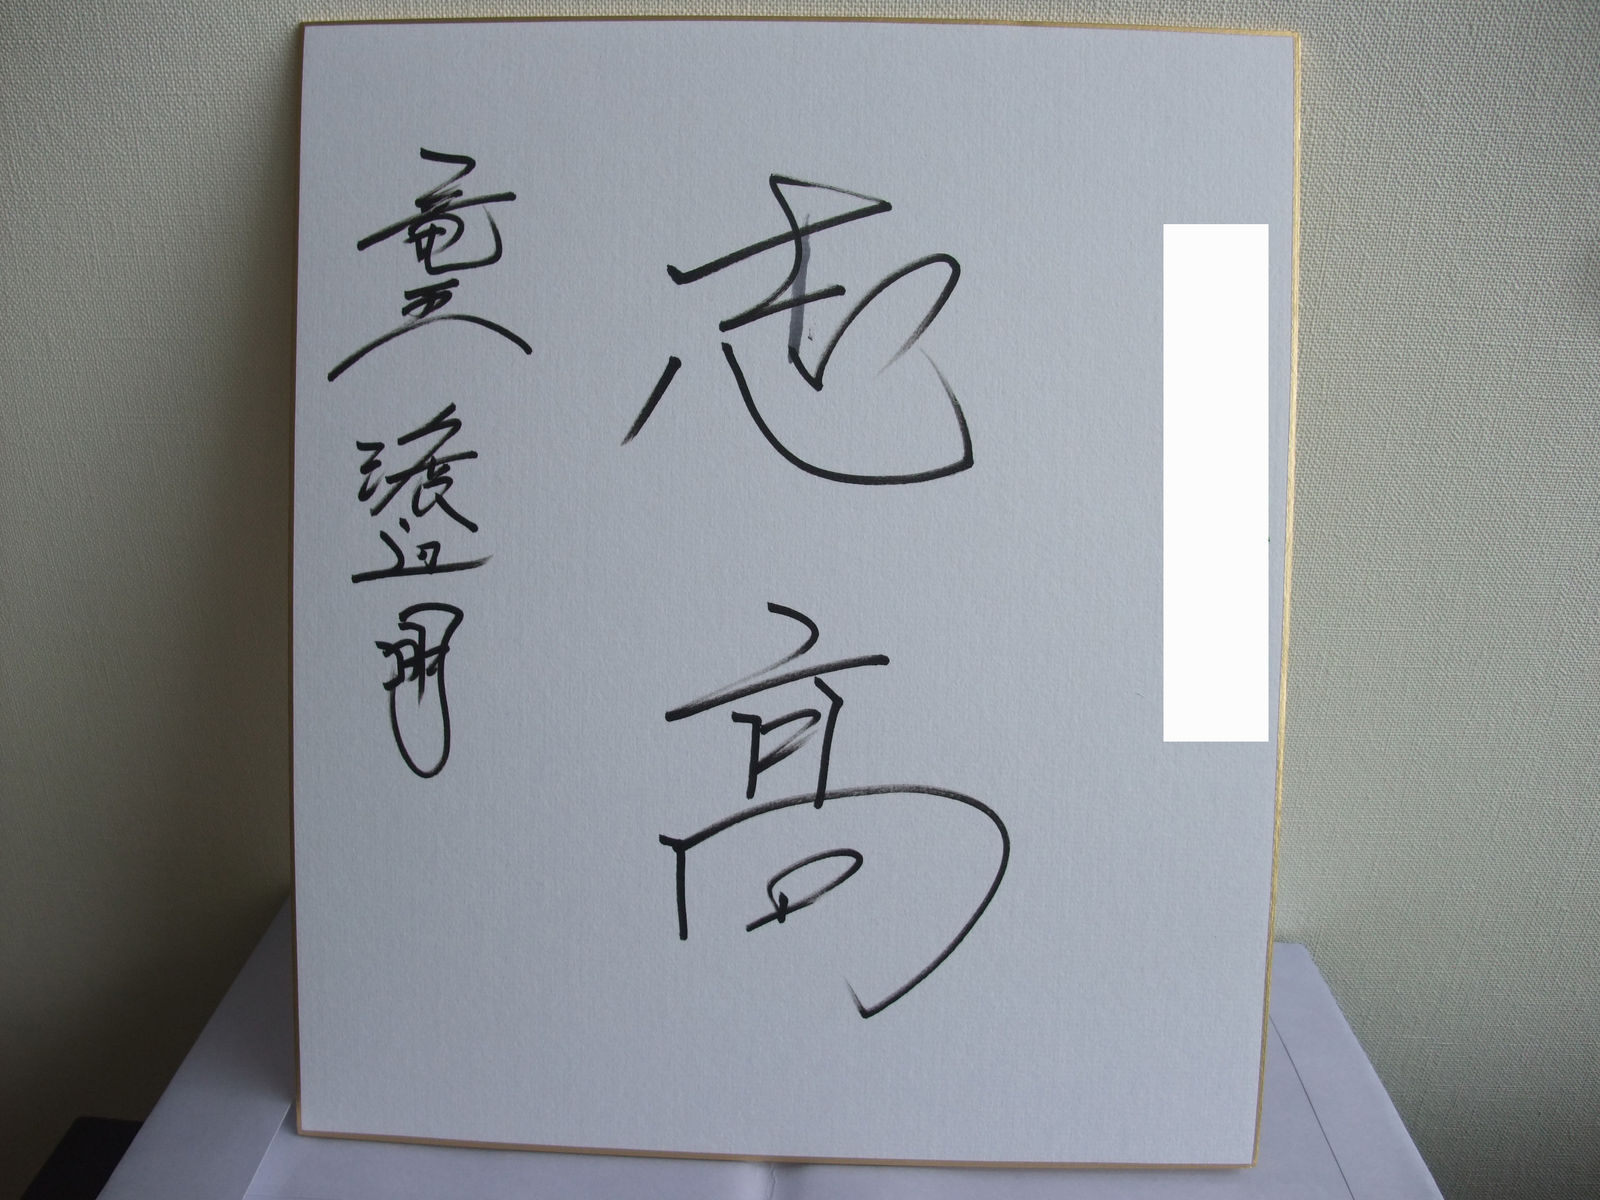 志高
竜王 渡辺明